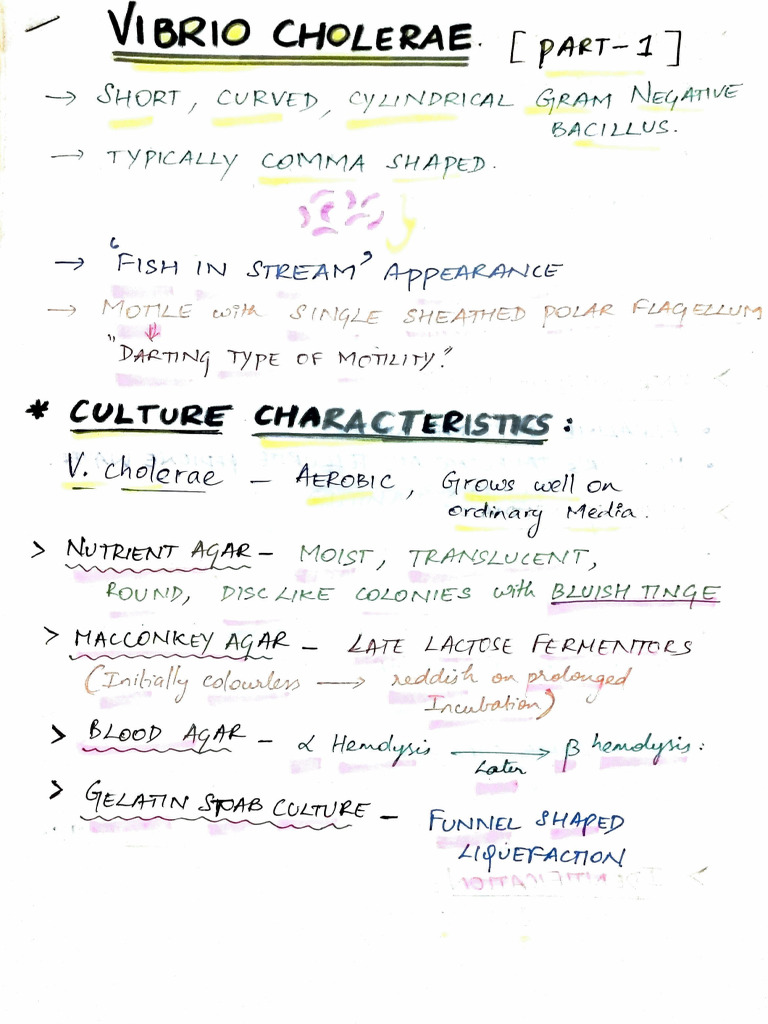 VIBRIO CHOLERAE. [PART-1]
→ SHORT, CURVED, CYLINDRICAL GRAM NEGATIVE
BACILLUS.
→ TYPICALLY COMMA SHAPED.
→ "FISH IN STREAM" APPEARANCE
→ MOTILE with SINGLE SHEATHED POLAR FLAGELLUM
"DARTING TYPE OF MOTILITY"
* CULTURE CHARACTERISTICS:
V. cholerae - AEROBIC, Grows well on
ordinary Media.
> NUTRIENT AGAR - MOIST, TRANSLUCENT,
ROUND, DISC LIKE COLONIES with BLUISH TINGE
> MACCONKEY AGAR - LATE LACTOSE FERMENTORS
(Initially colourless → reddish on prolonged
Incubation)
> BLOOD AGAR - α Hemolysis → β hemolysis:
Later
> GELATIN STAB CULTURE - FUNNEL SHAPED
LIQUEFACTION